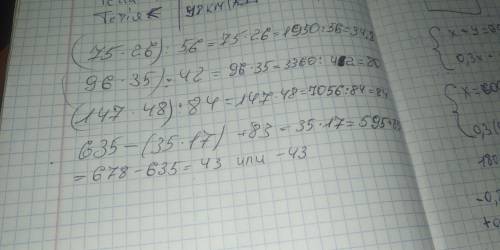 Течія
98км
(75·26): 56 = 75·26 = 1950:56 = 34,8
(96·35):42 = 96·35 = 3360: 42 = 80
(147·48):84 = 147·48 = 7056:84 = 84
635-(35·17) +83 = 35·17 = 595+83
= 678-635 = 43 или -43
x+y=
0,3x-
x=600
0,3(
180
-0,
+0